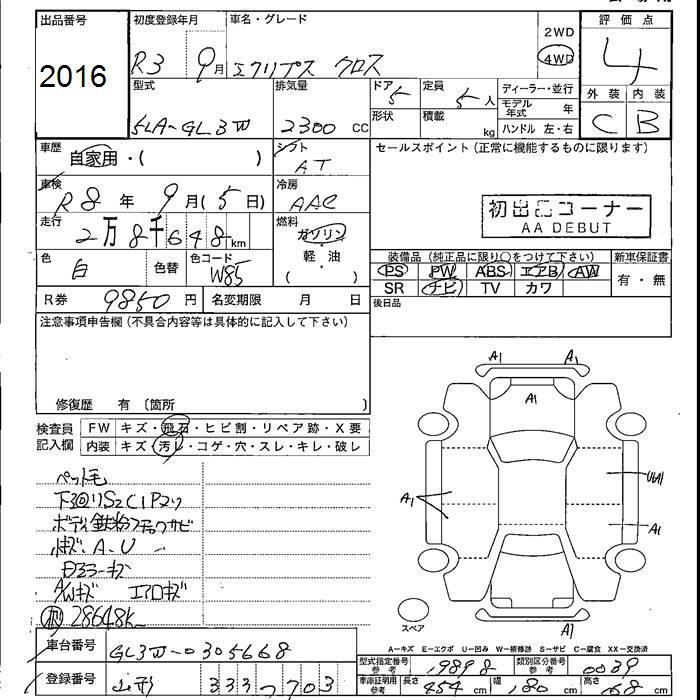 出品番号
2016
初度登録年月
R3 9月
車名・グレード
エクリプス クロス
2WD
4WD
評価点
4
外装 内装
C B
型式
5LA-GL3W
排気量
2300 cc
ドア
5
形状
定員
5人
積載
kg
ディーラー・並行
モデル年式 年
ハンドル 左・右
車歴
自家用・( )
シフト
AT
セールスポイント(正常に機能するものに限ります)
初出品コーナー
AA DEBUT
車検
R8 年 9月(5日)
冷房
AAC
走行
2万8千648km
燃料
ガソリン
・
軽・油
( )
色
白
色替
色コード
W85
装備品(純正品に限り○をつけて下さい)
新車保証書
PS PW ABS エアB AW
SR ナビ TV カワ
有・無
後日品
R券 9850円
名変期限 月 日
注意事項申告欄(不具合内容等は具体的に記入して下さい)
修復歴 有〔箇所 〕
検査員記入欄
FW キズ・飛石・ヒビ割・リペア跡・X要
内装 キズ・汚レ・コゲ・穴・スレ・キレ・破レ
ペット毛
下回りS2C1Pスリ
ボディ鉄粉フチョウサビ
小キズA-U
日ミラーキズ
A/Wキズ エアロキズ
28648K
A1
A1
A1
A1
U1A1
A1
A1
スペア
A-キズ E-エクボ U-凹み W-補修跡 S-サビ C-腐食 XX-交換済
車台番号
GL3W-0305668
登録番号
山形 333 7703
型式指定番号
参考
19898
類別区分番号
参考
0039
車庫証明用
参考
長さ 454cm
幅 180cm
高さ 168cm